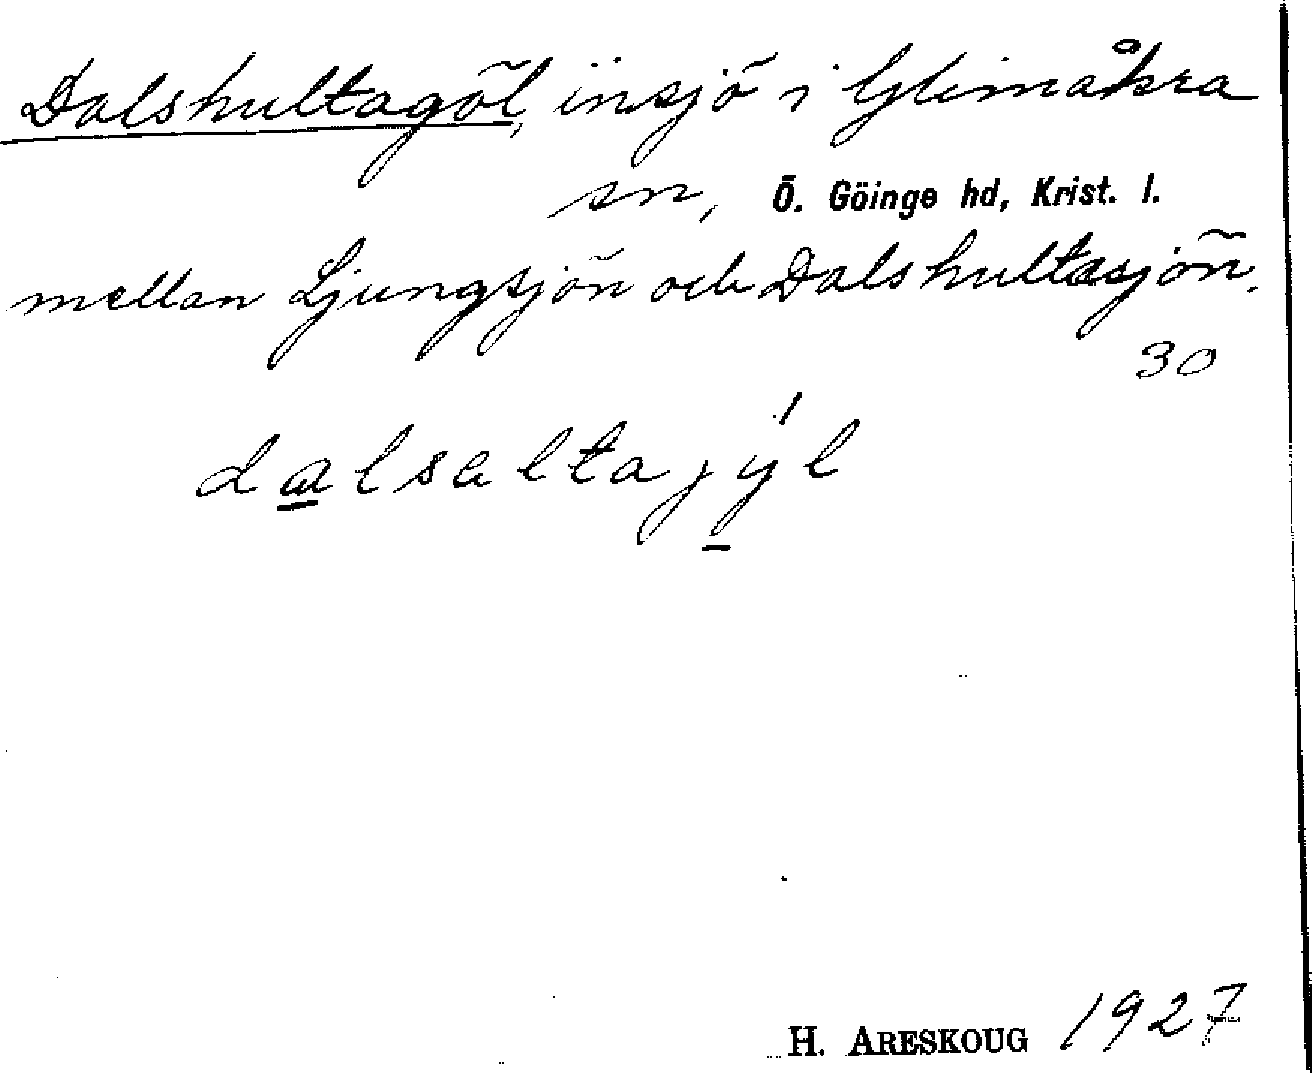 Dalshultagöl, insjö i Glimåkra
sn, Ö. Göinge hd, Krist. l.
mellan Ljungsjön och Dalshultasjön.
30
dalsaltajýl
H. ARESKOUG 1927